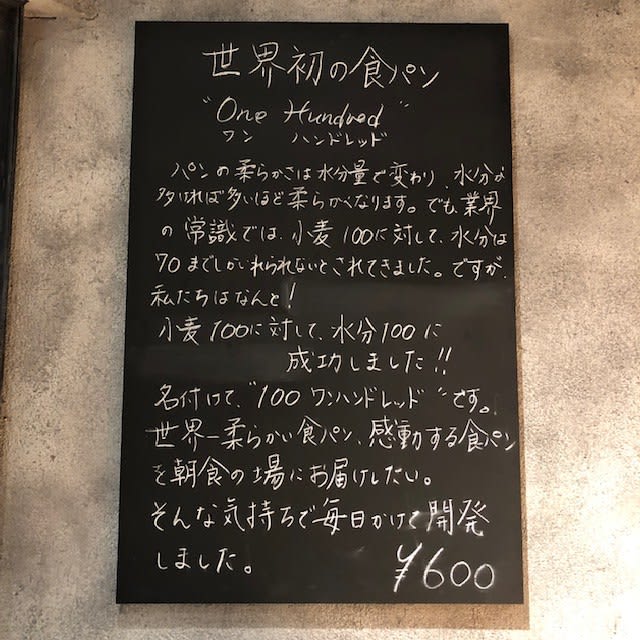 世界初の食パン
"One Hundred"
ワン ハンドレッド
パンの柔らかさは水分量で変わり、水分が
多ければ多いほど柔らかくなります。でも、業界
の常識では、小麦100に対して、水分は
70までしかいれられないとされてきました。ですが、
私たちはなんと!
小麦100に対して、水分100に
成功しました!!
名付けて、"100ワンハンドレッド"です。
世界一柔らかい食パン、感動する食パン
を朝食の場にお届けしたい。
そんな気持ちで毎日かけて開発
しました。
¥600